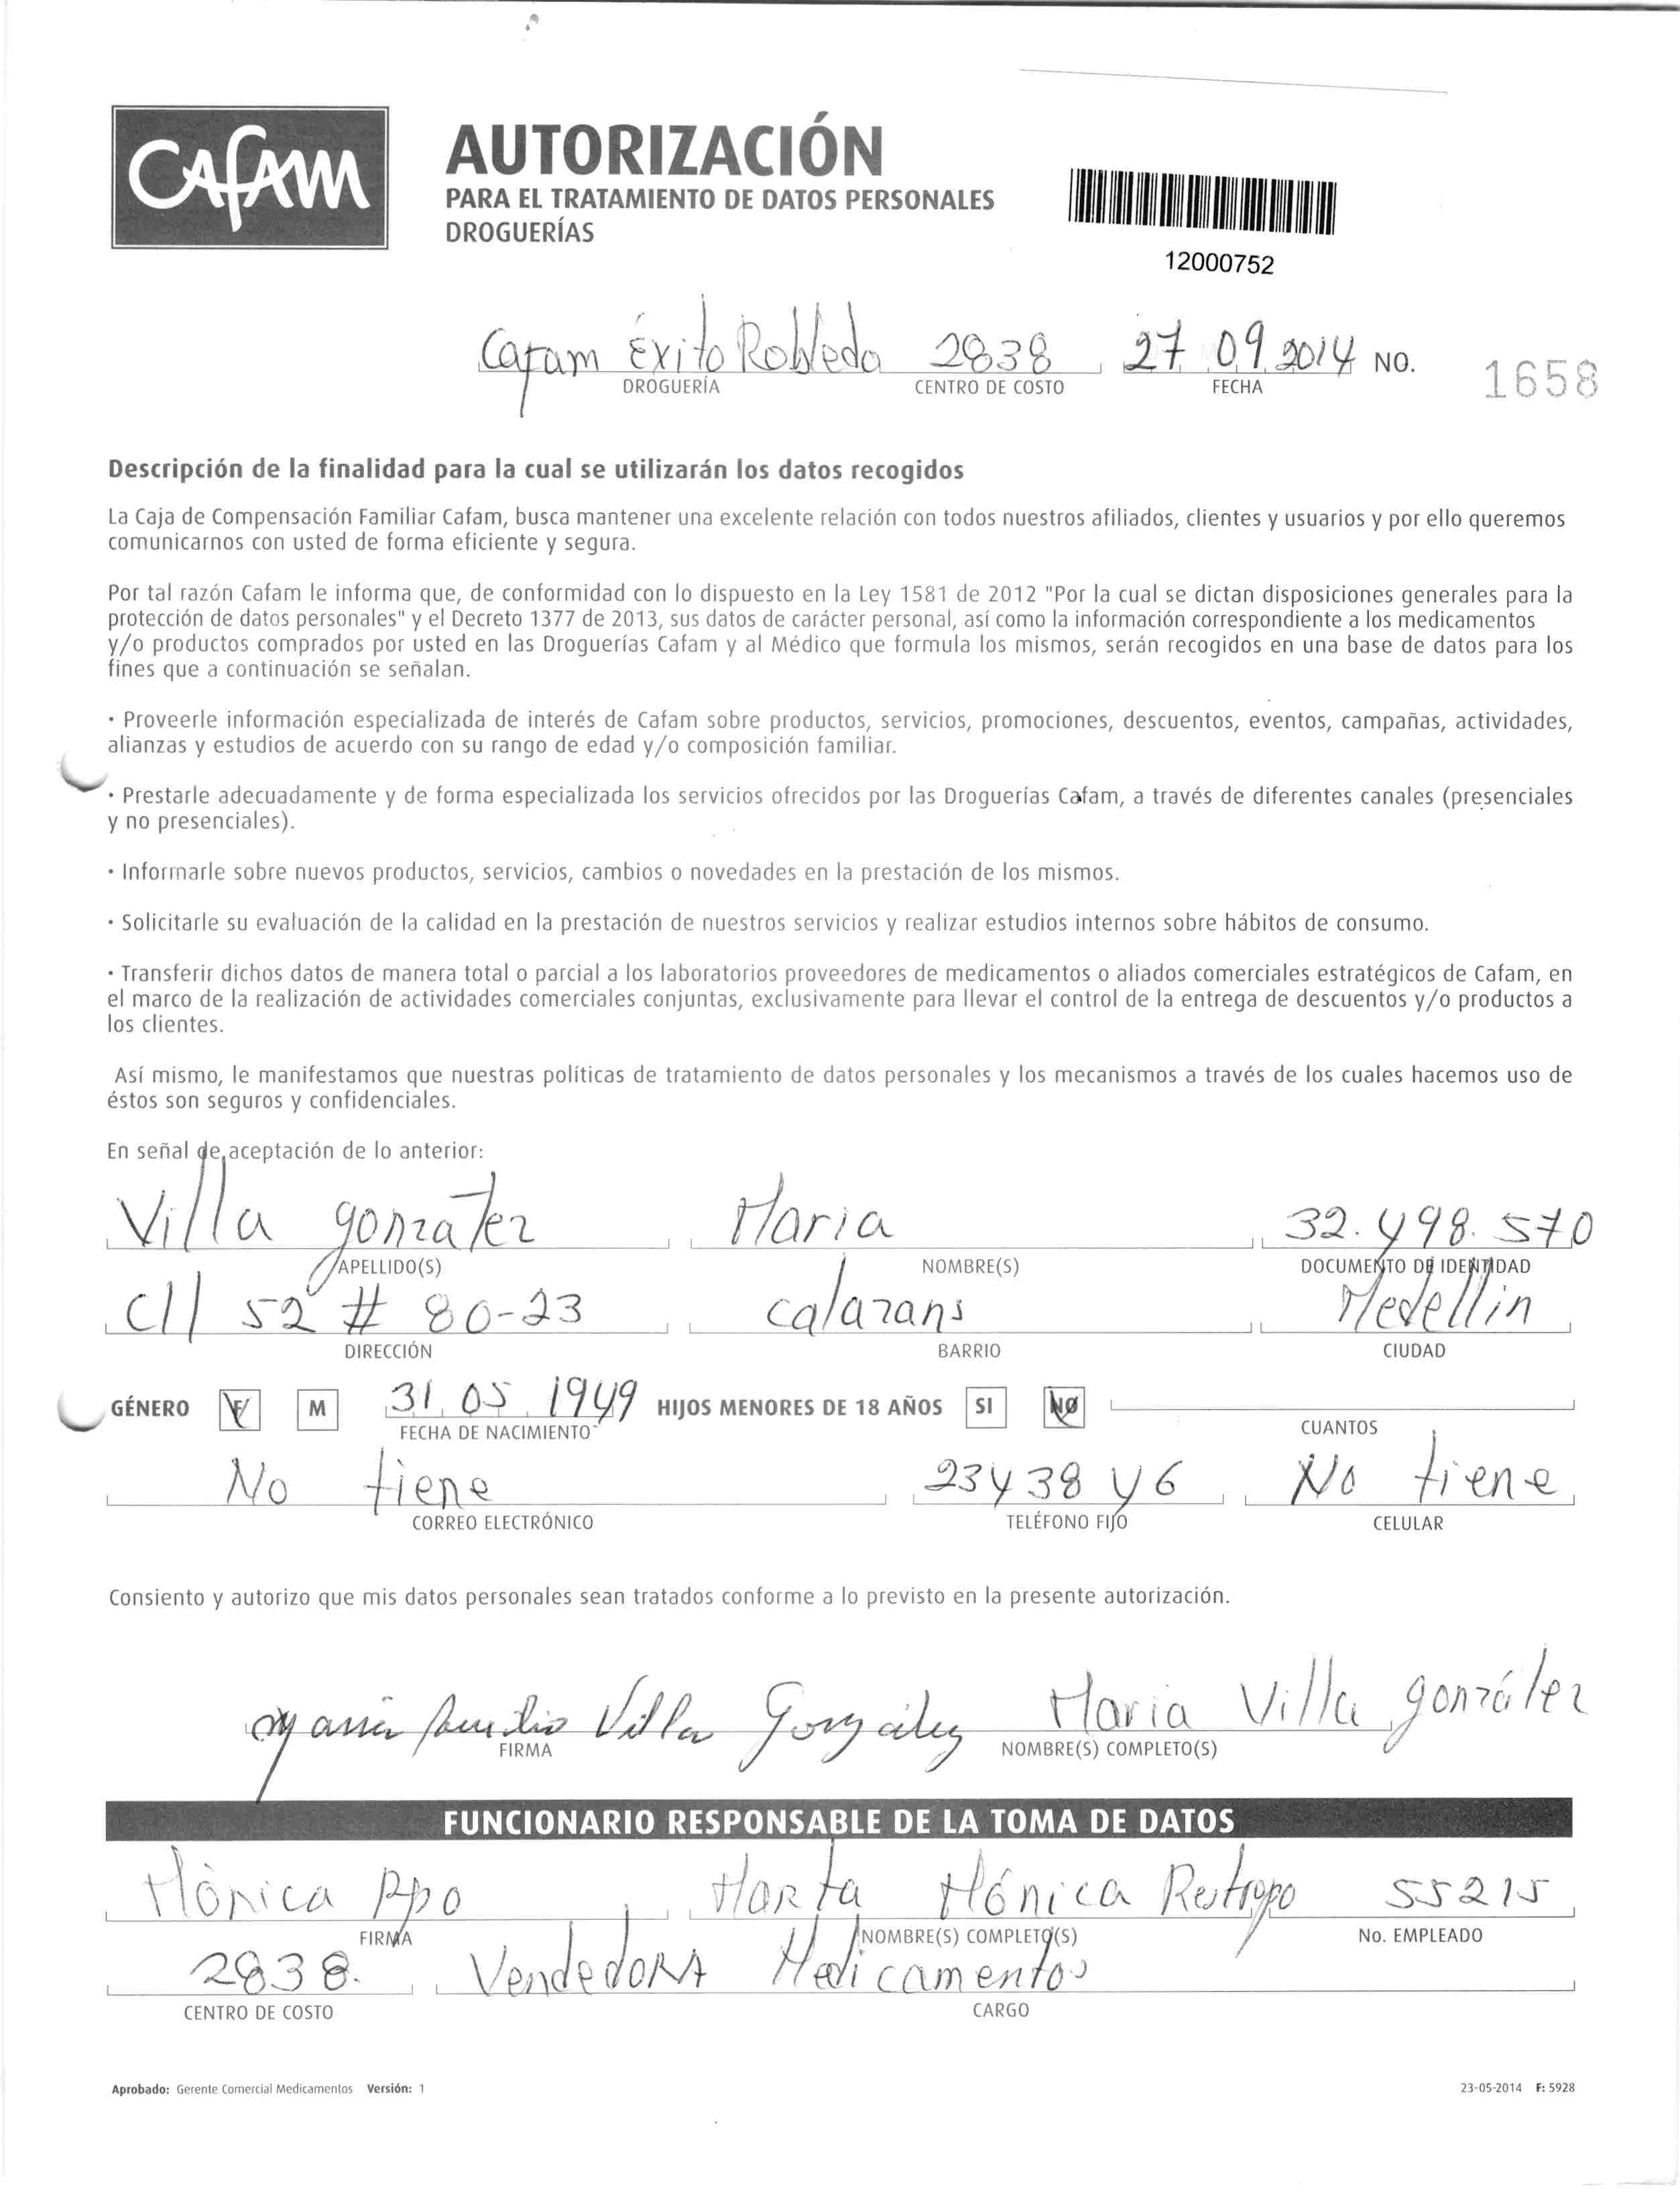 Cafam
AUTORIZACIÓN
PARA EL TRATAMIENTO DE DATOS PERSONALES
DROGUERÍAS
12000752
Cafam Éxito Robledo 2838 27 09 2014 NO. 1658
DROGUERÍA CENTRO DE COSTO FECHA
Descripción de la finalidad para la cual se utilizarán los datos recogidos
La Caja de Compensación Familiar Cafam, busca mantener una excelente relación con todos nuestros afiliados, clientes y usuarios y por ello queremos
comunicarnos con usted de forma eficiente y segura.
Por tal razón Cafam le informa que, de conformidad con lo dispuesto en la Ley 1581 de 2012 "Por la cual se dictan disposiciones generales para la
protección de datos personales" y el Decreto 1377 de 2013, sus datos de carácter personal, así como la información correspondiente a los medicamentos
y/o productos comprados por usted en las Droguerías Cafam y al Médico que formula los mismos, serán recogidos en una base de datos para los
fines que a continuación se señalan.
· Proveerle información especializada de interés de Cafam sobre productos, servicios, promociones, descuentos, eventos, campañas, actividades,
alianzas y estudios de acuerdo con su rango de edad y/o composición familiar.
· Prestarle adecuadamente y de forma especializada los servicios ofrecidos por las Droguerías Cafam, a través de diferentes canales (presenciales
y no presenciales).
· Informarle sobre nuevos productos, servicios, cambios o novedades en la prestación de los mismos.
· Solicitarle su evaluación de la calidad en la prestación de nuestros servicios y realizar estudios internos sobre hábitos de consumo.
· Transferir dichos datos de manera total o parcial a los laboratorios proveedores de medicamentos o aliados comerciales estratégicos de Cafam, en
el marco de la realización de actividades comerciales conjuntas, exclusivamente para llevar el control de la entrega de descuentos y/o productos a
los clientes.
Así mismo, le manifestamos que nuestras políticas de tratamiento de datos personales y los mecanismos a través de los cuales hacemos uso de
éstos son seguros y confidenciales.
En señal de aceptación de lo anterior:
Villa gonzalez Maria 32.498.570
APELLIDO(S) NOMBRE(S) DOCUMENTO DE IDENTIDAD
Cll 52 # 80-23 calazans Medellin
DIRECCIÓN BARRIO CIUDAD
GÉNERO F M 31 05 1949 HIJOS MENORES DE 18 AÑOS SI NO
FECHA DE NACIMIENTO CUANTOS
No tiene 234 38 46 No tiene
CORREO ELECTRÓNICO TELÉFONO FIJO CELULAR
Consiento y autorizo que mis datos personales sean tratados conforme a lo previsto en la presente autorización.
Maria Villa González Maria Villa gonzález
FIRMA NOMBRE(S) COMPLETO(S)
FUNCIONARIO RESPONSABLE DE LA TOMA DE DATOS
Mónica Rpo Marta Mónica Restrepo 55215
FIRMA NOMBRE(S) COMPLETO(S) No. EMPLEADO
2838. Vendedora Medicamentos
CENTRO DE COSTO CARGO
Aprobado: Gerente Comercial Medicamentos Versión: 1 23-05-2014 F: 5928